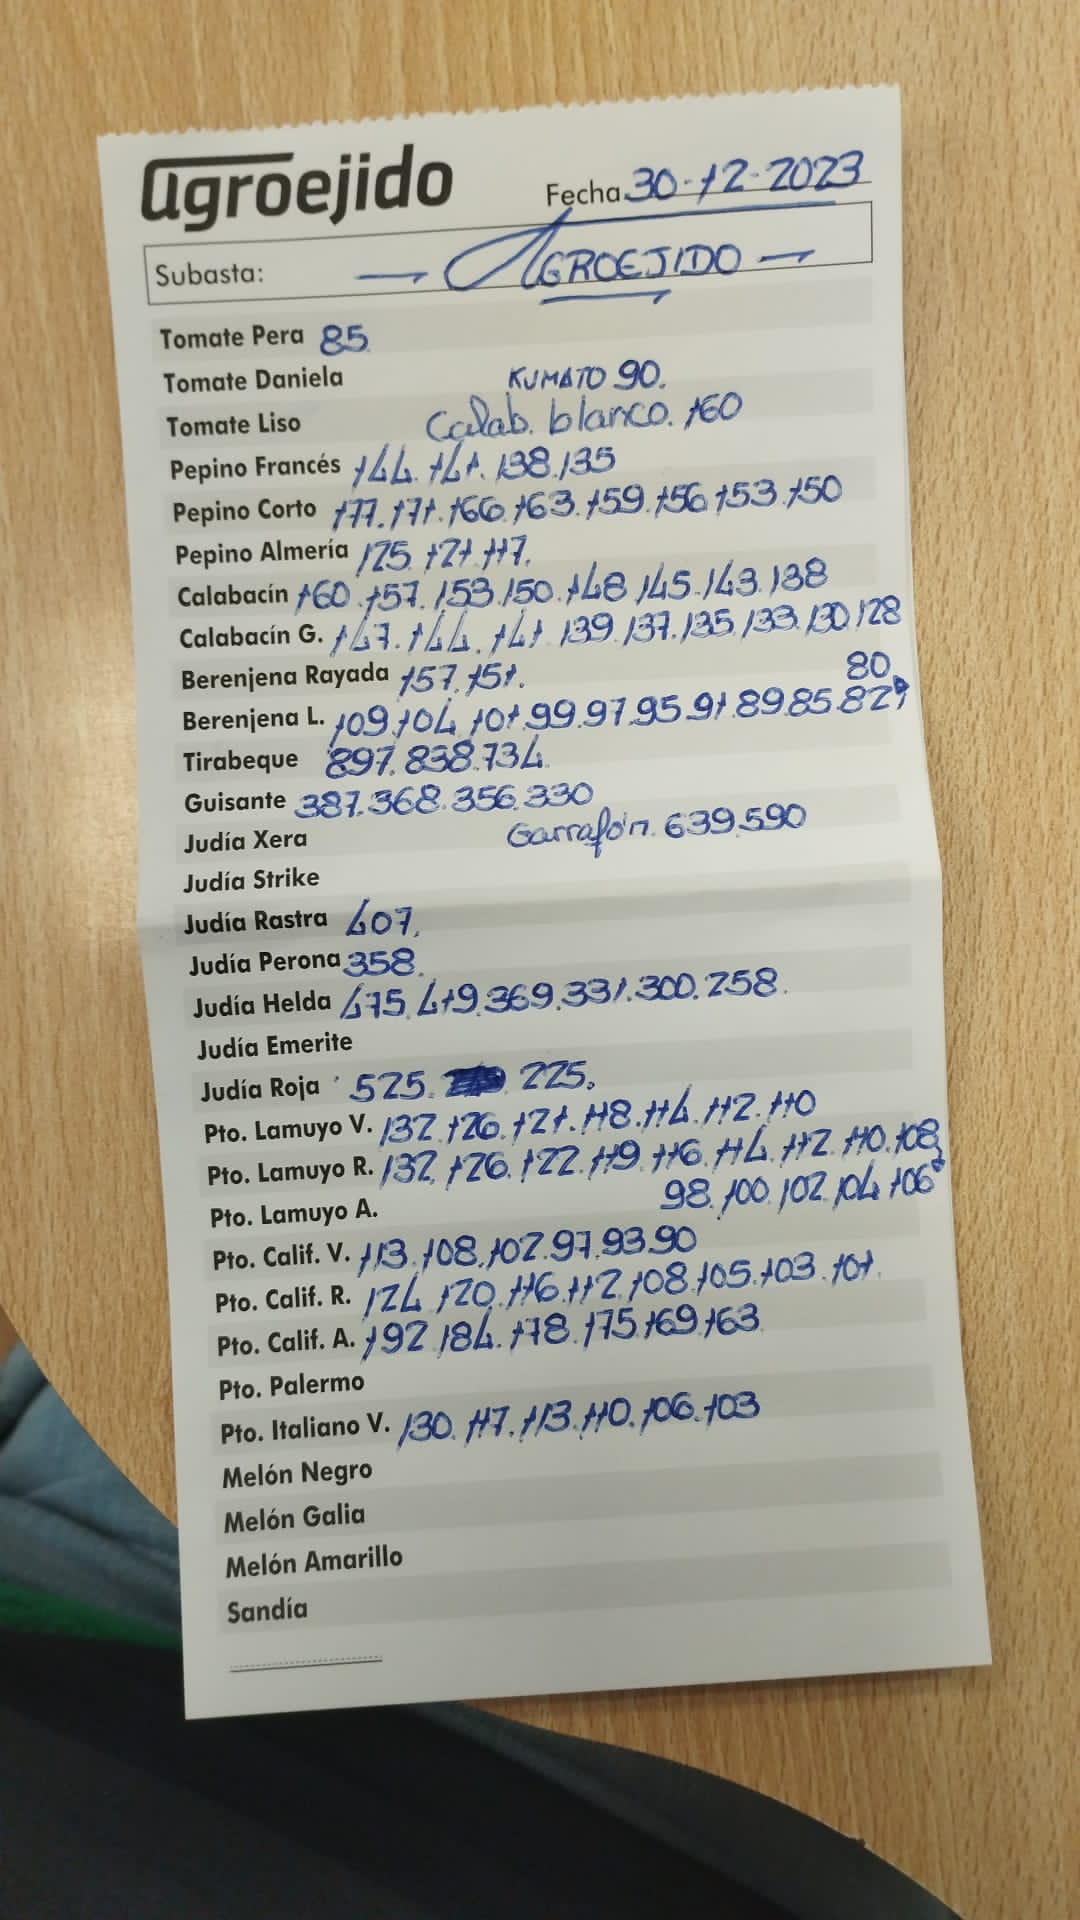 agroejido
Fecha 30-12-2023
Subasta: — AGROEJIDO —
Tomate Pera 85
Tomate Daniela KUMATO 90.
Tomate Liso Calab. blanco. 160
Pepino Francés 144. 141. 138. 135
Pepino Corto 177. 171. 166. 163. 159. 156 153. 150
Pepino Almería 125. 121. 117.
Calabacín 160. 157. 153. 150. 148. 145. 143. 138
Calabacín G. 147. 144. 141. 139. 137. 135. 133. 130. 128
Berenjena Rayada 157. 151.
80
Berenjena L. 109. 104. 101. 99. 97. 95. 91. 89. 85. 82
Tirabeque 897. 838. 734.
Guisante 387. 368. 356. 330
Judía Xera Garrafón. 639. 590
Judía Strike
Judía Rastra 407.
Judía Perona 358.
Judía Helda 475. 419. 369. 331. 300. 258.
Judía Emerite
Judía Roja 525. 225.
Pto. Lamuyo V. 132. 126. 121. 118. 114. 112. 110
Pto. Lamuyo R. 132. 126. 122. 119. 116. 114. 112. 110. 108
Pto. Lamuyo A. 98. 100. 102. 104. 106
Pto. Calif. V. 113. 108. 102. 97. 93. 90
Pto. Calif. R. 124. 120. 116. 112. 108. 105. 103. 101.
Pto. Calif. A. 192. 184. 178. 175. 169. 163
Pto. Palermo
Pto. Italiano V. 130. 117. 113. 110. 106. 103
Melón Negro
Melón Galia
Melón Amarillo
Sandía